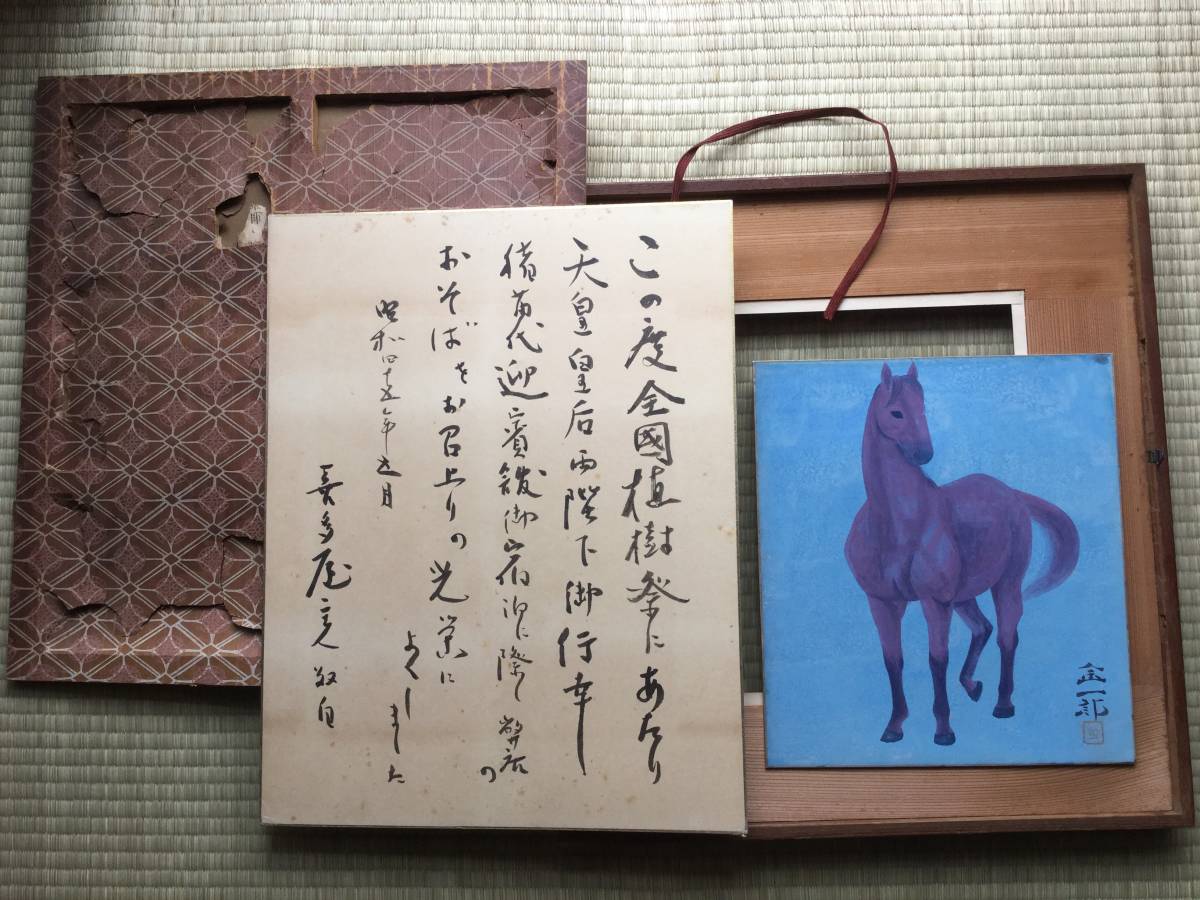 この度全國植樹祭にあたり
天皇皇后両陛下御行幸し
猪苗代迎賓館御宿泊に際し弊店の
おそばをお召上りの光栄に
よくしました
昭和四十五年五月
喜多屋 敬白
金一郎